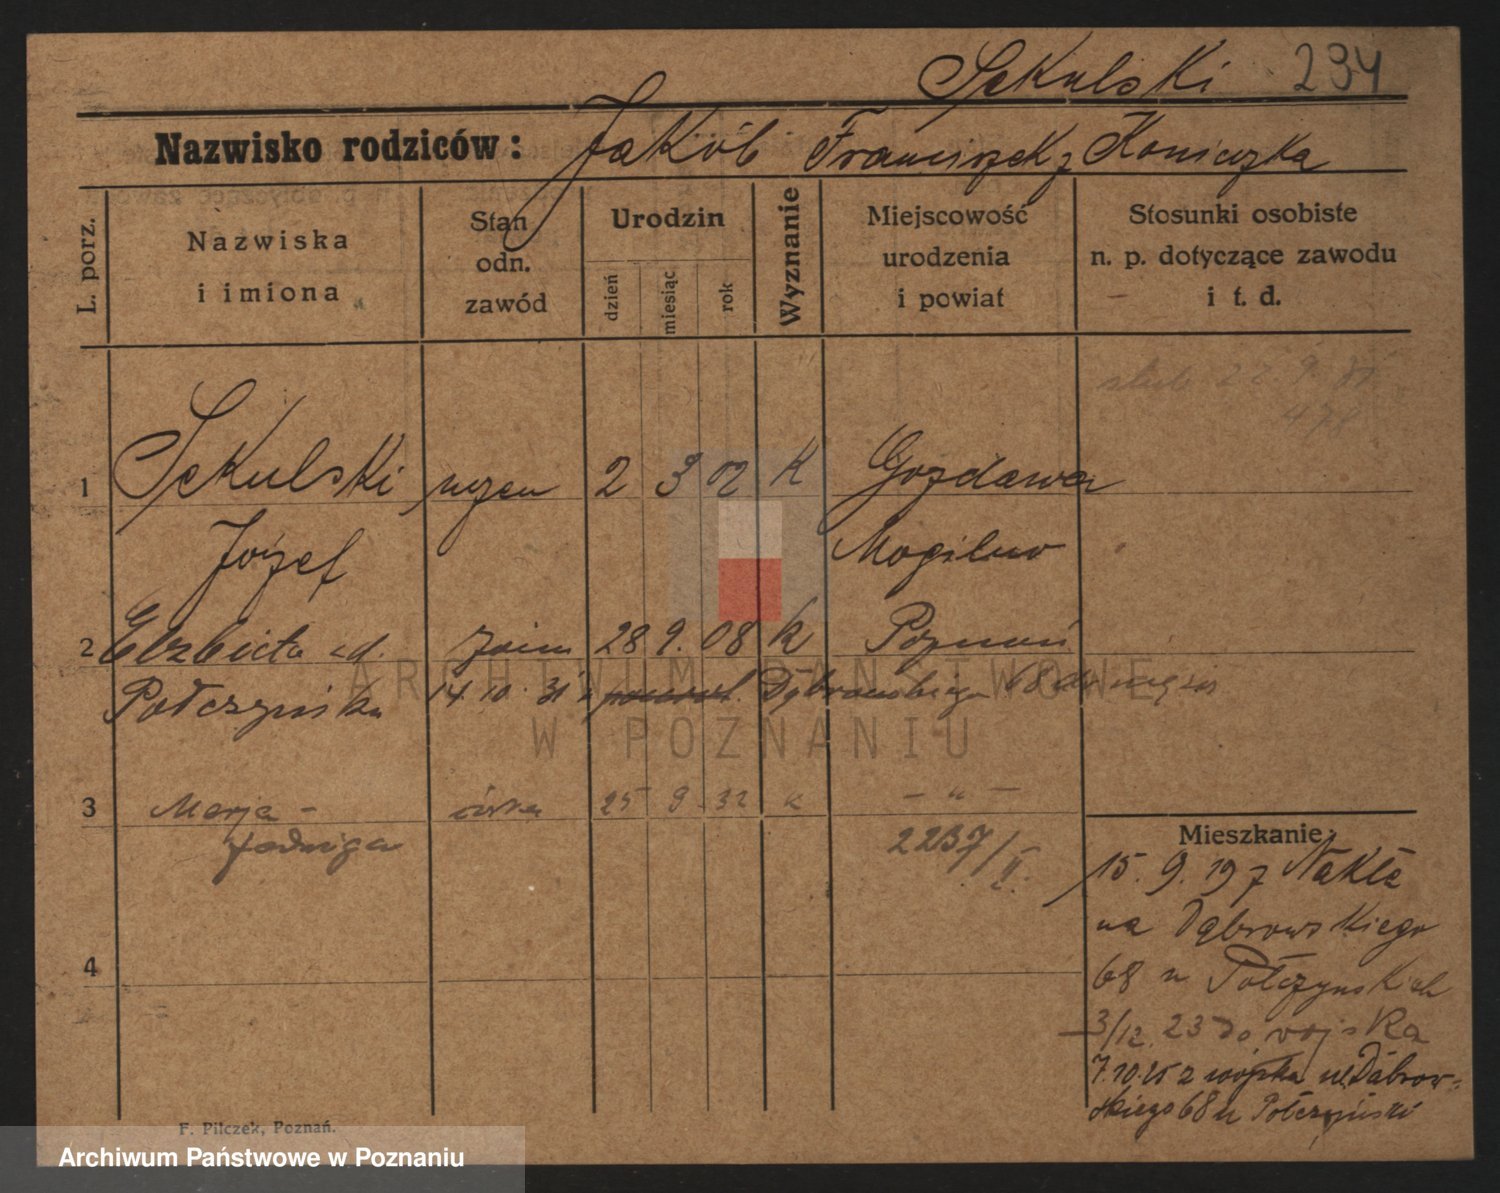 Sękulski 234
Nazwisko rodziców: Jakób Franciszek z Koniczka
L. porz.
Nazwiska
i imiona
Stan
odn.
zawód
Urodzin
dzień
miesiąc
rok
Wyznanie
Miejscowość
urodzenia
i powiat
Stosunki osobiste
n. p. dotyczące zawodu
i t. d.
ślub 22. 9. 31
478
1 Sękulski uczeń 2 3 02 K Gozdawa
Józef Mogilno
2 Elżbieta zd. żona 28 9. 08 K Poznań
Połczyńska 14.10.31 Dąbrowskiego 68 do męża
3 Marja - córka 25 9 32 K - " -
Jadwiga 2237/II.
4
Mieszkanie:
15. 9. 19 z Nakła
na Dąbrowskiego
68 u Połczyńskich
3/12. 23 do wojska
7.10.25 z wojska ul. Dąbrow-
skiego 68 u Połczyński
F. Pilczek, Poznań.
ARCHIWUM PAŃSTWOWE
W POZNANIU
Archiwum Państwowe w Poznaniu